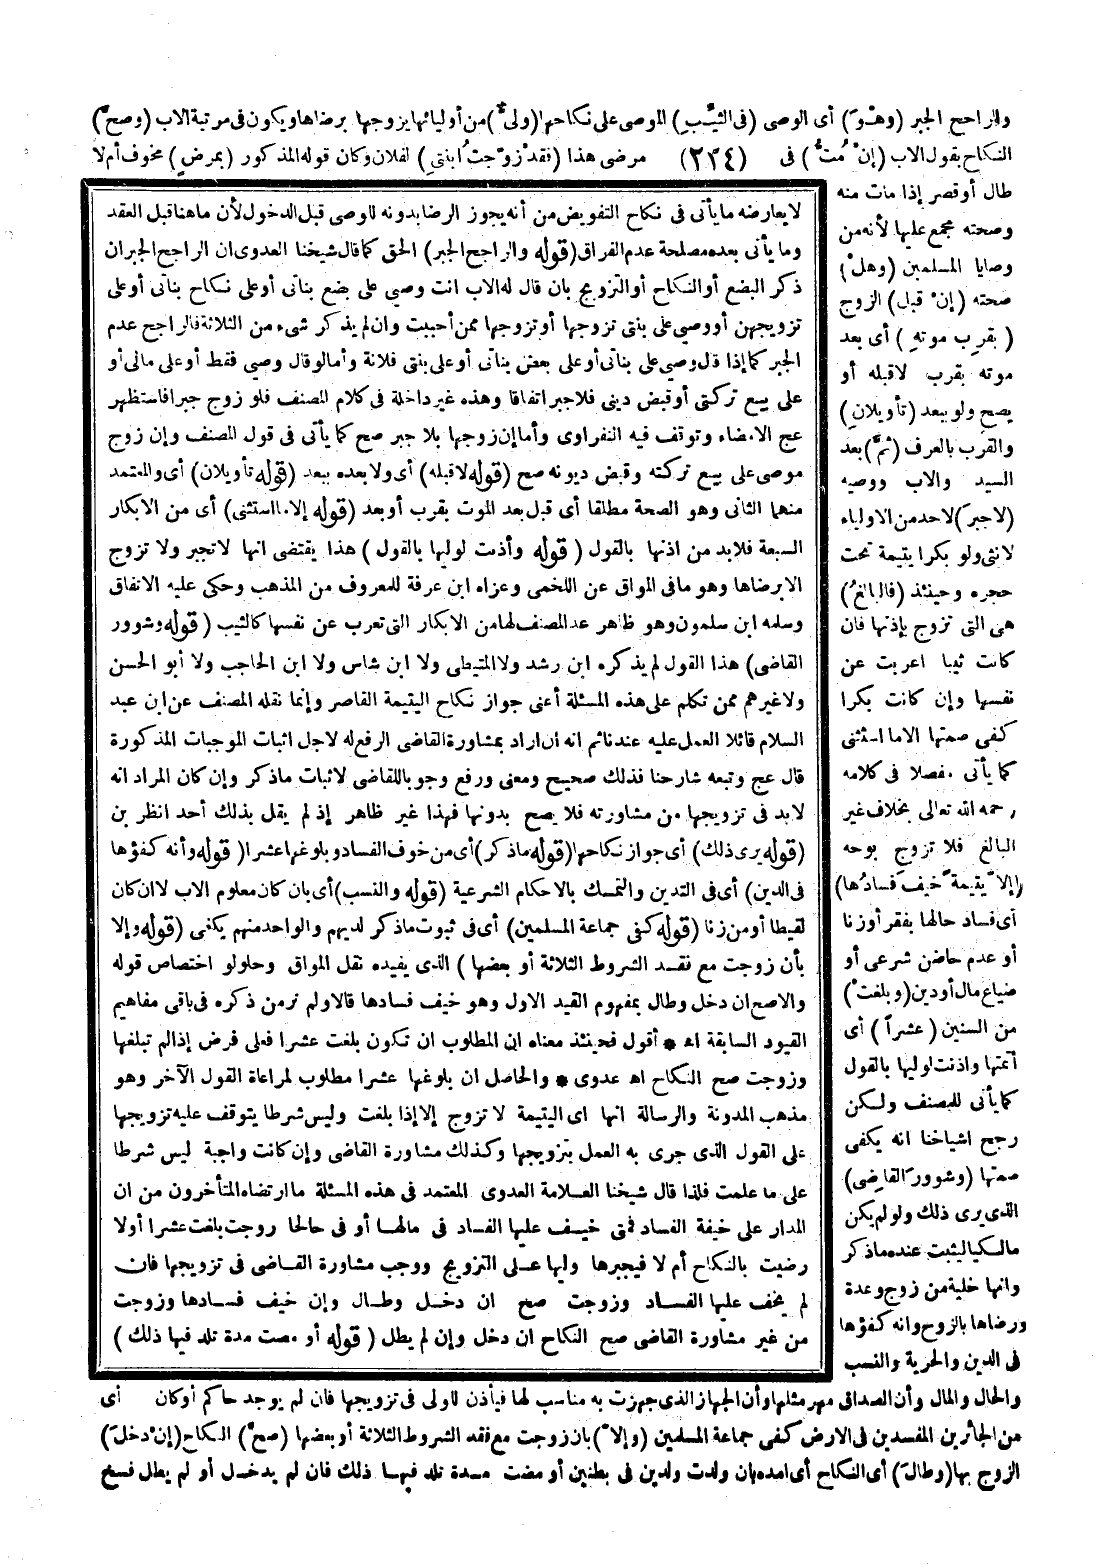 والراجح الجبر (وهْوَ) أى الوصى (فى الثيِّب) الموصى على نكاحها (ولىٌّ) من أوليائها يزوجها برضاها ويكون فى مرتبة الاب (وصحَّ)
النكاح بقول الاب (إنْ مُتُّ) فى (٢٢٤) مرضى هذا (فقدْ زوّجتُ ابنتى) لفلان وكان قوله المذكور (بمرضٍ) مخوف أم لا
طال أو قصر إذا مات منه
وصحته مجمع عليها لأنه من
وصايا المسلمين (وهلْ)
صحته (إنْ قبل) الزوج
(بقربِ موتهِ) أى بعد
موته بقرب لا قبله أو
يصح ولو ببعد (تأويلانِ)
والقرب بالعرف (ثمَّ) بعد
السيد والاب ووصيه
(لا جبرَ) لاحد من الاولياء
لانثى ولو بكرا يتيمة تحت
حجره وحينئذ (فالبالغُ)
هى التى تزوج بإذنها فان
كانت ثيبا اعربت عن
نفسها وإن كانت بكرا
كفى صمتها الا ما استثنى
كما يأتى مفصلا فى كلامه
رحمه الله تعالى بخلاف غير
البالغ فلا تزوج بوجه
(إلاَّ يتيمةً خيفَ فسادُها)
أى فساد حالها بفقر أو زنا
أو عدم حاضن شرعى أو
ضياع مال أو دين (وبلغتْ)
من السنين (عشراً) أى
أتمتها واذنت لوليها بالقول
كما يأتى للمصنف ولكن
رجح اشياخنا انه يكفى
صمتها (وشوورَ القاضِى)
الذى يرى ذلك ولو لم يكن
مالكيا ليثبت عنده ما ذكر
وانها خلية من زوج وعدة
ورضاها بالزوج وانه كفؤها
فى الدين والحرية والنسب
والحال والمال وأن الصداق مهر مثلها وأن الجهاز الذى جهزت به مناسب لها فيأذن للولى فى تزويجها فان لم يوجد حاكم أو كان أى
من الجائرين المفسدين فى الارض كفى جماعة المسلمين (وإلاَّ) بان زوجت مع فقد الشروط الثلاثة أو بعضها (صحَّ) النكاح (إنْ دخلَ)
الزوج بها (وطالَ) أى النكاح أى امده بان ولدت ولدين فى بطنين أو مضت مدة تلد فيها ذلك فان لم يدخل أو لم يطل فسخ
لا يعارضه ما يأتى فى نكاح التفويض من أنه يجوز الرضا بدونه للوصى قبل الدخول لأن ما هنا قبل العقد
وما يأتى بعده مصلحة عدم الفراق (قوله والراجح الجبر) الحق كما قال شيخنا العدوى ان الراجح الجبر ان
ذكر البضع أو النكاح أو التزويج بان قال له الاب انت وصيي على بضع بناتى أو على نكاح بناتى أو على
تزويجهن أو وصي على بنتى تزوجها أو تزوجها ممن أحببت وان لم يذكر شىء من الثلاثة فالراجح عدم
الجبر كما إذا قال وصي على بناتى أو على بعض بناتى أو على بنتى فلانة وأما لو قال وصي فقط أو على مالى أو
على بيع تركتى أو قبض دينى فلا جبر اتفاقا وهذه غير داخلة فى كلام المصنف فلو زوج جبرا فاستظهر
عج الامضاء وتوقف فيه النفراوى وأما إن زوجها بلا جبر صح كما يأتى فى قول المصنف وإن زوج
موصى على بيع تركته وقبض ديونه صح (قوله لا قبله) أى ولا بعده ببعد (قوله تأويلان) أى والمعتمد
منهما الثانى وهو الصحة مطلقا أى قبل بعد الموت بقرب أو بعد (قوله إلا ما استثنى) أى من الابكار
السبعة فلا بد من اذنها بالقول (قوله وأذنت لوليها بالقول) هذا يقتضى انها لا تجبر ولا تزوج
الا برضاها وهو ما فى المواق عن اللخمى وعزاه ابن عرفة للمعروف من المذهب وحكى عليه الاتفاق
وسلمه ابن سلمون وهو ظاهر عد المصنف لها من الابكار التى تعرب عن نفسها كالثيب (قوله وشوور
القاضى) هذا القول لم يذكره ابن رشد ولا المتيطى ولا ابن شاس ولا ابن الحاجب ولا أبو الحسن
ولا غيرهم ممن تكلم على هذه المسئلة أعنى جواز نكاح اليتيمة القاصر وإنما نقله المصنف عن ابن عبد
السلام قائلا العمل عليه عندنا ثم انه ان اراد بمشاورة القاضى الرفع له لاجل اثبات الموجبات المذكورة
قال عج وتبعه شارحنا فذلك صحيح ومعنى ورفع وجوبا للقاضى لاثبات ما ذكر وإن كان المراد انه
لا بد فى تزويجها من مشاورته فلا يصح بدونها فهذا غير ظاهر إذ لم يقل بذلك أحد انظر بن
(قوله يرى ذلك) أى جواز نكاحها (قوله ما ذكر) أى من خوف الفساد وبلوغها عشرا (قوله وأنه كفؤها
فى الدين) أى فى التدين والتمسك بالاحكام الشرعية (قوله والنسب) أى بان كان معلوم الاب لا ان كان
لقيطا أو من زنا (قوله كفى جماعة المسلمين) أى فى ثبوت ما ذكر لديهم والواحد منهم يكفى (قوله وإلا
بأن زوجت مع فقد الشروط الثلاثة أو بعضها) الذى يفيده نقل المواق وحلولو اختصاص قوله
والاصح ان دخل وطال بمفهوم القيد الاول وهو خيف فسادها قالا ولم نر من ذكره فى باقى مفاهيم
القيود السابقة اه * أقول فحينئذ معناه ان المطلوب ان تكون بلغت عشرا فعلى فرض إذا لم تبلغها
وزوجت صح النكاح اه عدوى * والحاصل ان بلوغها عشرا مطلوب لمراعاة القول الآخر وهو
مذهب المدونة والرسالة انها اى اليتيمة لا تزوج إلا إذا بلغت وليس شرطا يتوقف عليه تزويجها
على القول الذى جرى به العمل بتزويجها وكذلك مشاورة القاضى وإن كانت واجبة ليس شرطا
على ما علمت فلذا قال شيخنا العلامة العدوى المعتمد فى هذه المسئلة ما ارتضاه المتأخرون من ان
المدار على خيفة الفساد فمتى خيف عليها الفساد فى مالها أو فى حالها زوجت بلغت عشرا أو لا
رضيت بالنكاح أم لا فيجبرها وليها على التزويج ووجب مشاورة القاضى فى تزويجها فان
لم يخف عليها الفساد وزوجت صح ان دخل وطال وإن خيف فسادها وزوجت
من غير مشاورة القاضى صح النكاح ان دخل وإن لم يطل (قوله أو مضت مدة تلد فيها ذلك)